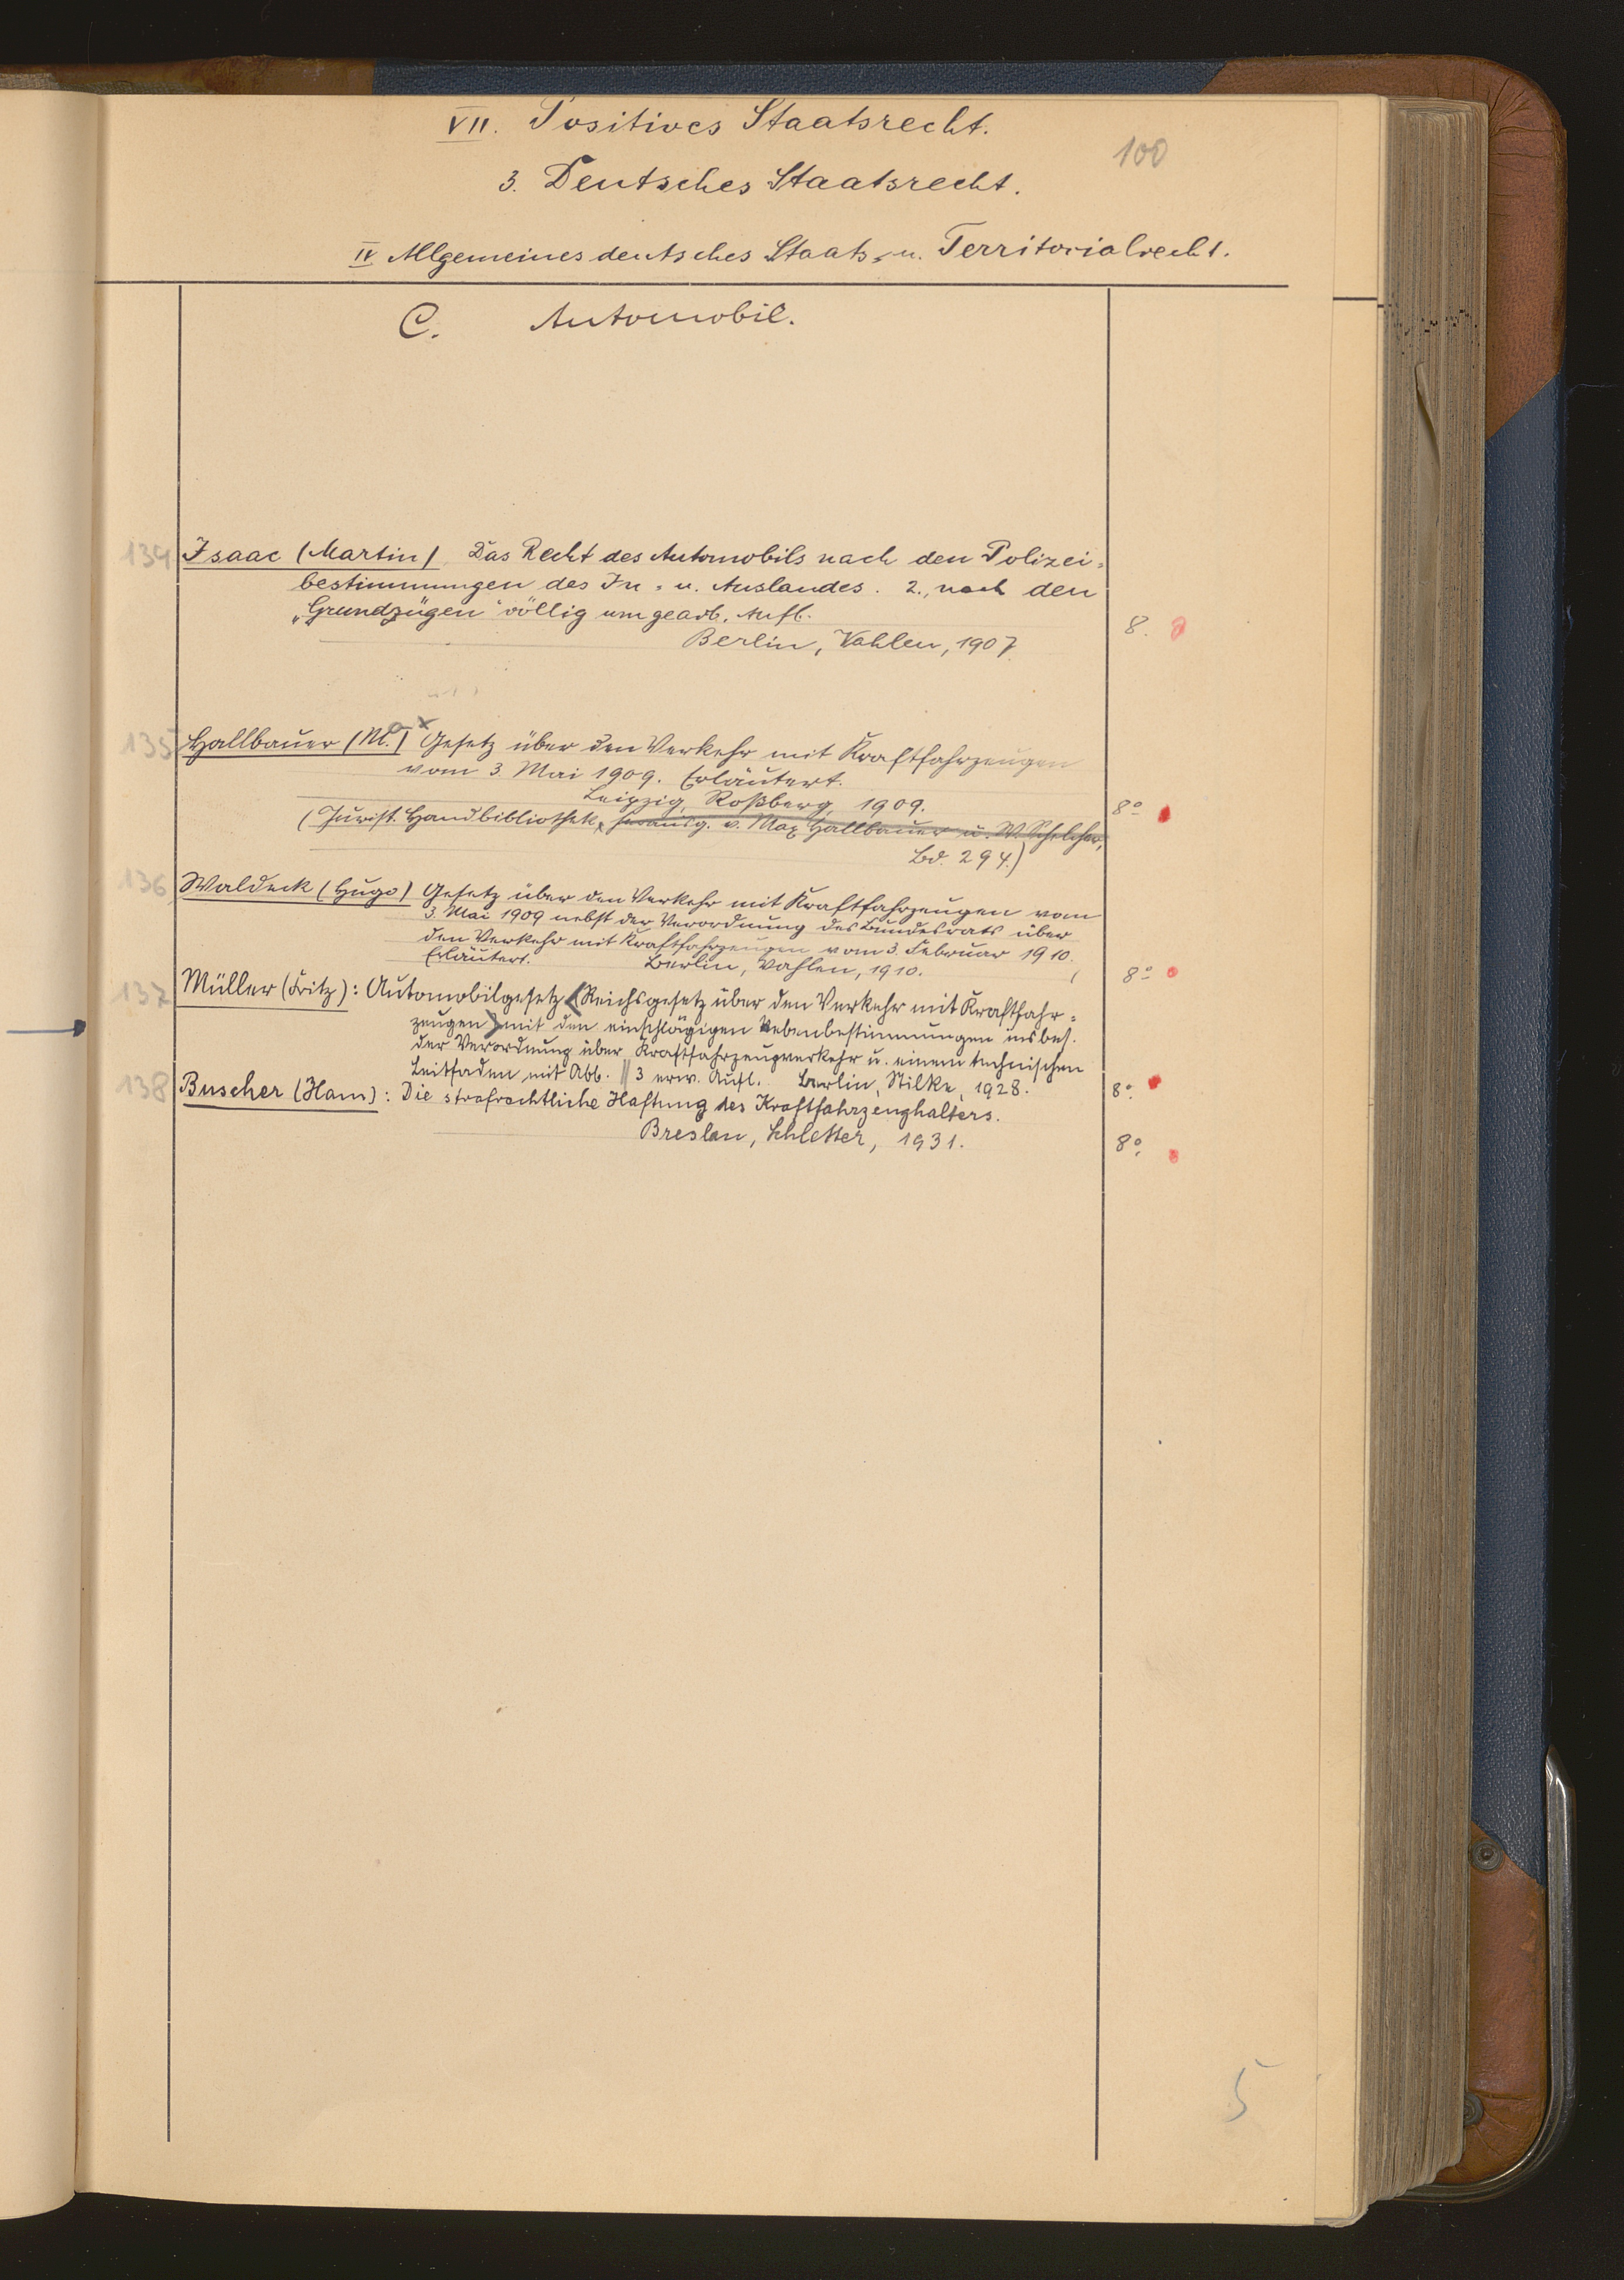 VII. Positives Staatsrecht.
100
3. Deutsches Staatsrecht.
IV Allgemeines deutsches Staats- u. Territorialrecht.
C. Automobil.
134 Isaac (Martin), Das Recht des Automobils nach den Polizei=
bestimmungen des In- u. Auslandes. 2., nach den
„Grundzügen" völlig umgearb. Aufl.
Berlin, Vahlen, 1907. 8.
135 Hallbauer (M.) Gesetz über den Verkehr mit Kraftfahrzeugen
vom 3. Mai 1909. Erläutert.
Leipzig, Roßberg, 1909. 8°
(Jurist. Handbibliothek, herausg. v. Max Hallbauer u. W. Schelcher,
Bd. 294.)
136 Waldeck (Hugo) Gesetz über den Verkehr mit Kraftfahrzeugen vom
3. Mai 1909 nebst der Verordnung des Bundesrats über
den Verkehr mit Kraftfahrzeugen vom 3. Februar 1910.
Erläutert. Berlin, Vahlen, 1910. 8°
137 Müller (Fritz): Automobilgesetz <(Reichsgesetz über den Verkehr mit Kraftfahr=
zeugen)> mit den einschlägigen Nebenbestimmungen insbes.
der Verordnung über Kraftfahrzeugverkehr u. einem technischen
Leitfaden mit Abb. || 3 erw. Aufl. Berlin, Stilke, 1928. 8°.
138 Buscher (Hans): Die strafrechtliche Haftung des Kraftfahrzeughalters.
Breslau, Schletter, 1931. 8°.
5